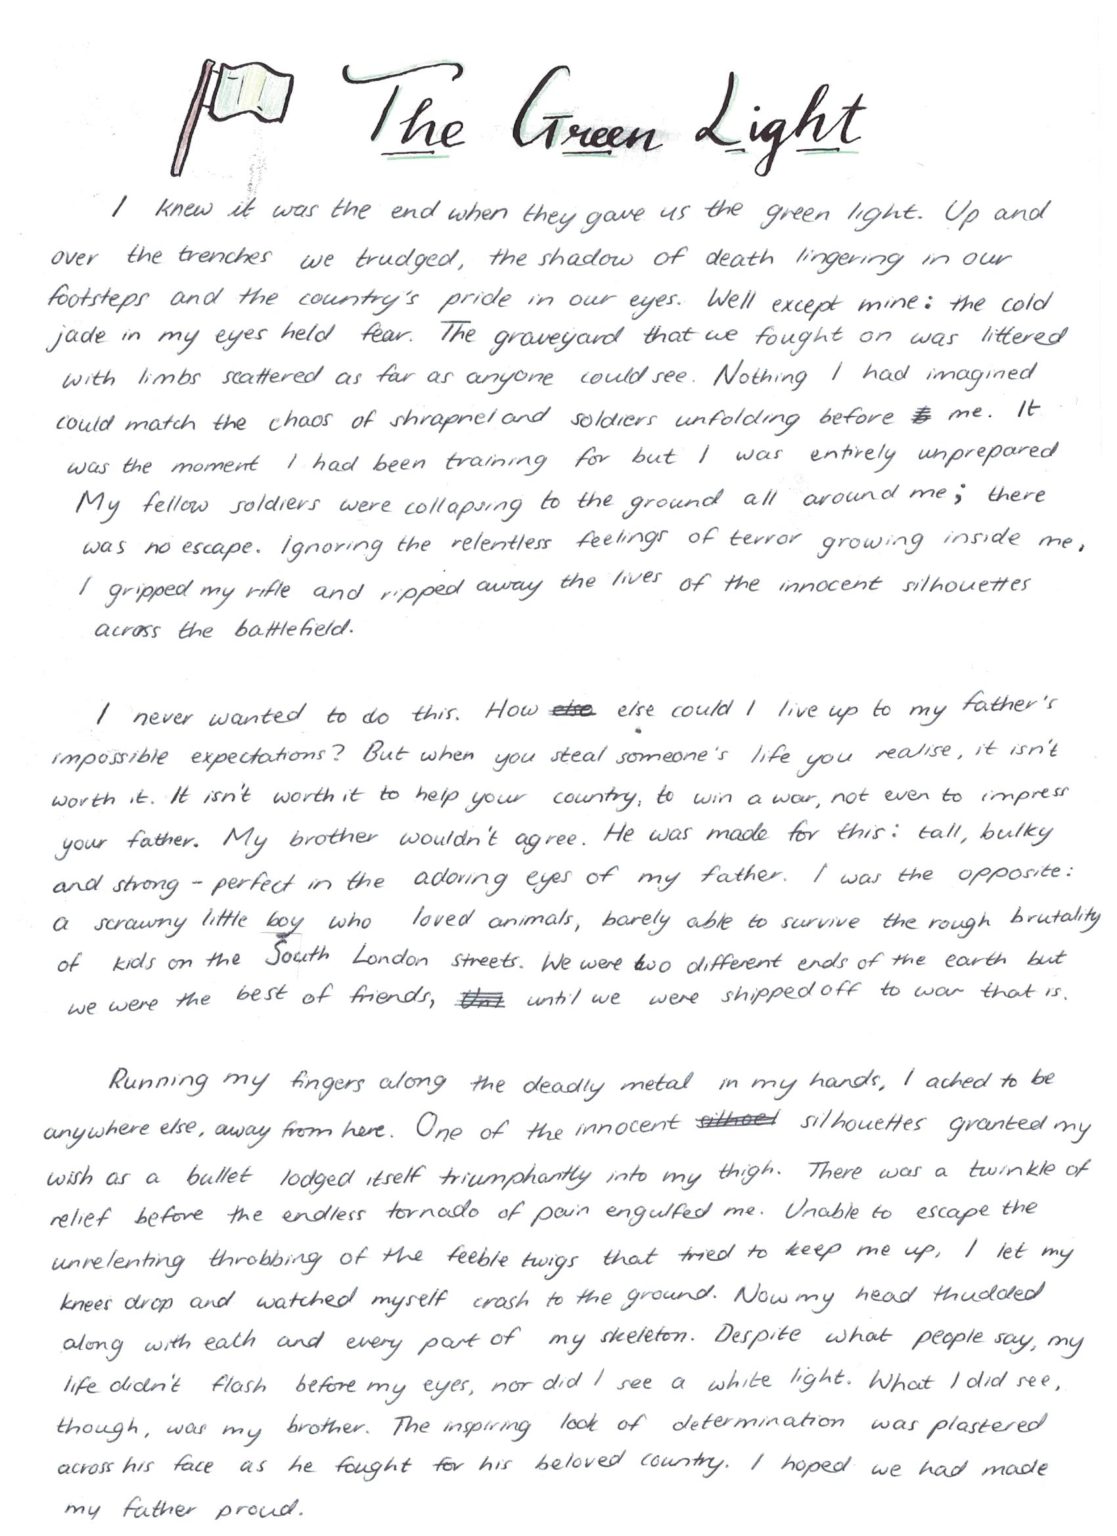 The Green Light
I knew it was the end when they gave us the green light. Up and
over the trenches we trudged, the shadow of death lingering in our
footsteps and the country's pride in our eyes. Well except mine: the cold
jade in my eyes held fear. The graveyard that we fought on was littered
with limbs scattered as far as anyone could see. Nothing I had imagined
could match the chaos of shrapnel and soldiers unfolding before me. It
was the moment I had been training for but I was entirely unprepared
My fellow soldiers were collapsing to the ground all around me; there
was no escape. Ignoring the relentless feelings of terror growing inside me,
I gripped my rifle and ripped away the lives of the innocent silhouettes
across the battlefield.
I never wanted to do this. How else else could I live up to my father's
impossible expectations? But when you steal someone's life you realise, it isn't
worth it. It isn't worth it to help your country, to win a war, not even to impress
your father. My brother wouldn't agree. He was made for this: tall, bulky
and strong - perfect in the adoring eyes of my father. I was the opposite:
a scrawny little boy who loved animals, barely able to survive the rough brutality
of kids on the South London streets. We were two different ends of the earth but
we were the best of friends, until we were shipped off to war that is.
Running my fingers along the deadly metal in my hands, I ached to be
anywhere else, away from here. One of the innocent silhoel silhouettes granted my
wish as a bullet lodged itself triumphantly into my thigh. There was a twinkle of
relief before the endless tornado of pain engulfed me. Unable to escape the
unrelenting throbbing of the feeble twigs that tried to keep me up, I let my
knees drop and watched myself crash to the ground. Now my head thudded
along with each and every part of my skeleton. Despite what people say, my
life didn't flash before my eyes, nor did I see a white light. What I did see,
though, was my brother. The inspiring look of determination was plastered
across his face as he fought for his beloved country. I hoped we had made
my father proud.